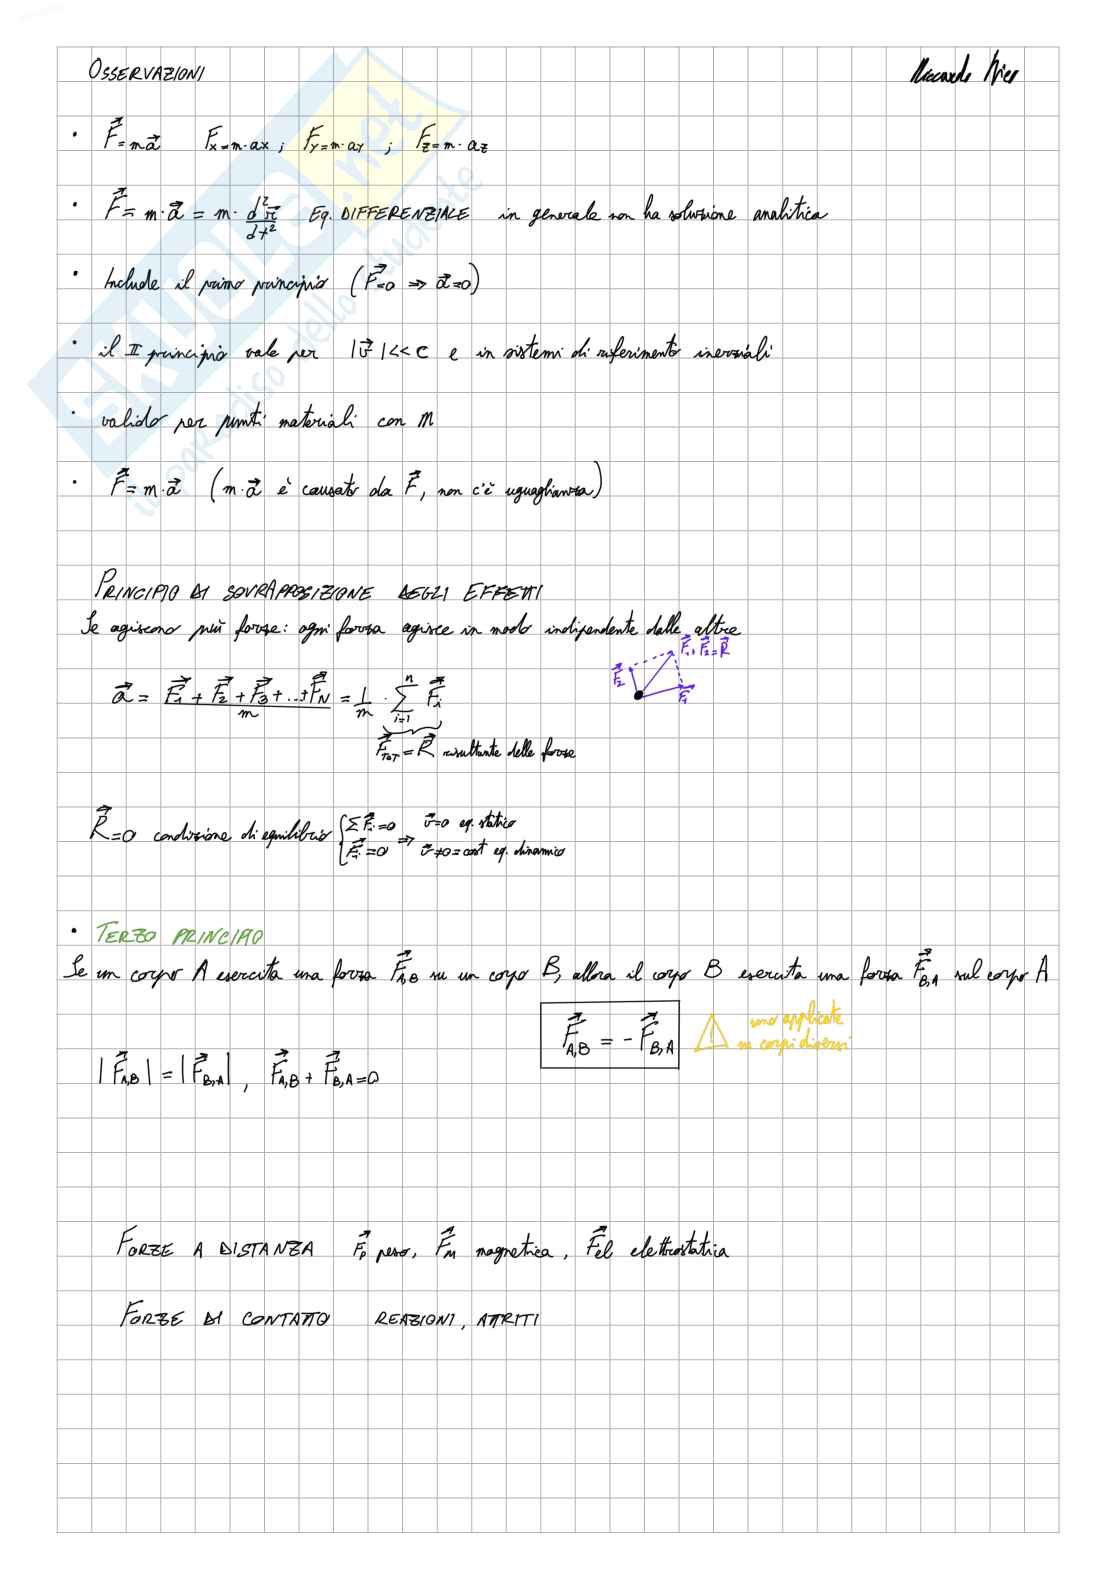 OSSERVAZIONI
Riccardo
• F⃗ = m a⃗   Fx = m·ax ; Fy = m·ay ; Fz = m·az
• F⃗ = m·a⃗ = m· d²r⃗/dt²  Eq. DIFFERENZIALE in generale non ha soluzione analitica
• Include il primo principio (F⃗=0 ⇒ a⃗=0)
• il II principio vale per |v⃗| << c e in sistemi di riferimento inerziali
• valido per punti materiali con m
• F⃗ = m·a⃗ (m·a⃗ è causato da F⃗, non c'è uguaglianza)
PRINCIPIO DI SOVRAPPOSIZIONE DEGLI EFFETTI
Se agiscono più forze: ogni forza agisce in modo indipendente dalle altre
F⃗1+F⃗2=R⃗
F⃗2
F⃗1
a⃗ = (F⃗1 + F⃗2 + F⃗3 + ...+ F⃗N)/m = 1/m · Σ_{i=1}^{n} F⃗i
F⃗TOT = R⃗ risultante delle forze
R⃗=0 condizione di equilibrio { ΣF⃗i=0   v⃗=0 eq. statico
F⃗i=0 ⇒ v⃗≠0=cost eq. dinamico
• TERZO PRINCIPIO
Se un corpo A esercita una forza F⃗A,B su un corpo B, allora il corpo B esercita una forza F⃗B,A sul corpo A
F⃗A,B = -F⃗B,A
sono applicate
su corpi diversi
|F⃗A,B| = |F⃗B,A| , F⃗A,B + F⃗B,A = 0
FORZE A DISTANZA   F⃗p peso, F⃗M magnetica, F⃗el elettrostatica
FORZE DI CONTATTO   REAZIONI, ATTRITI
SKUOLA.net
il paradiso dello studente